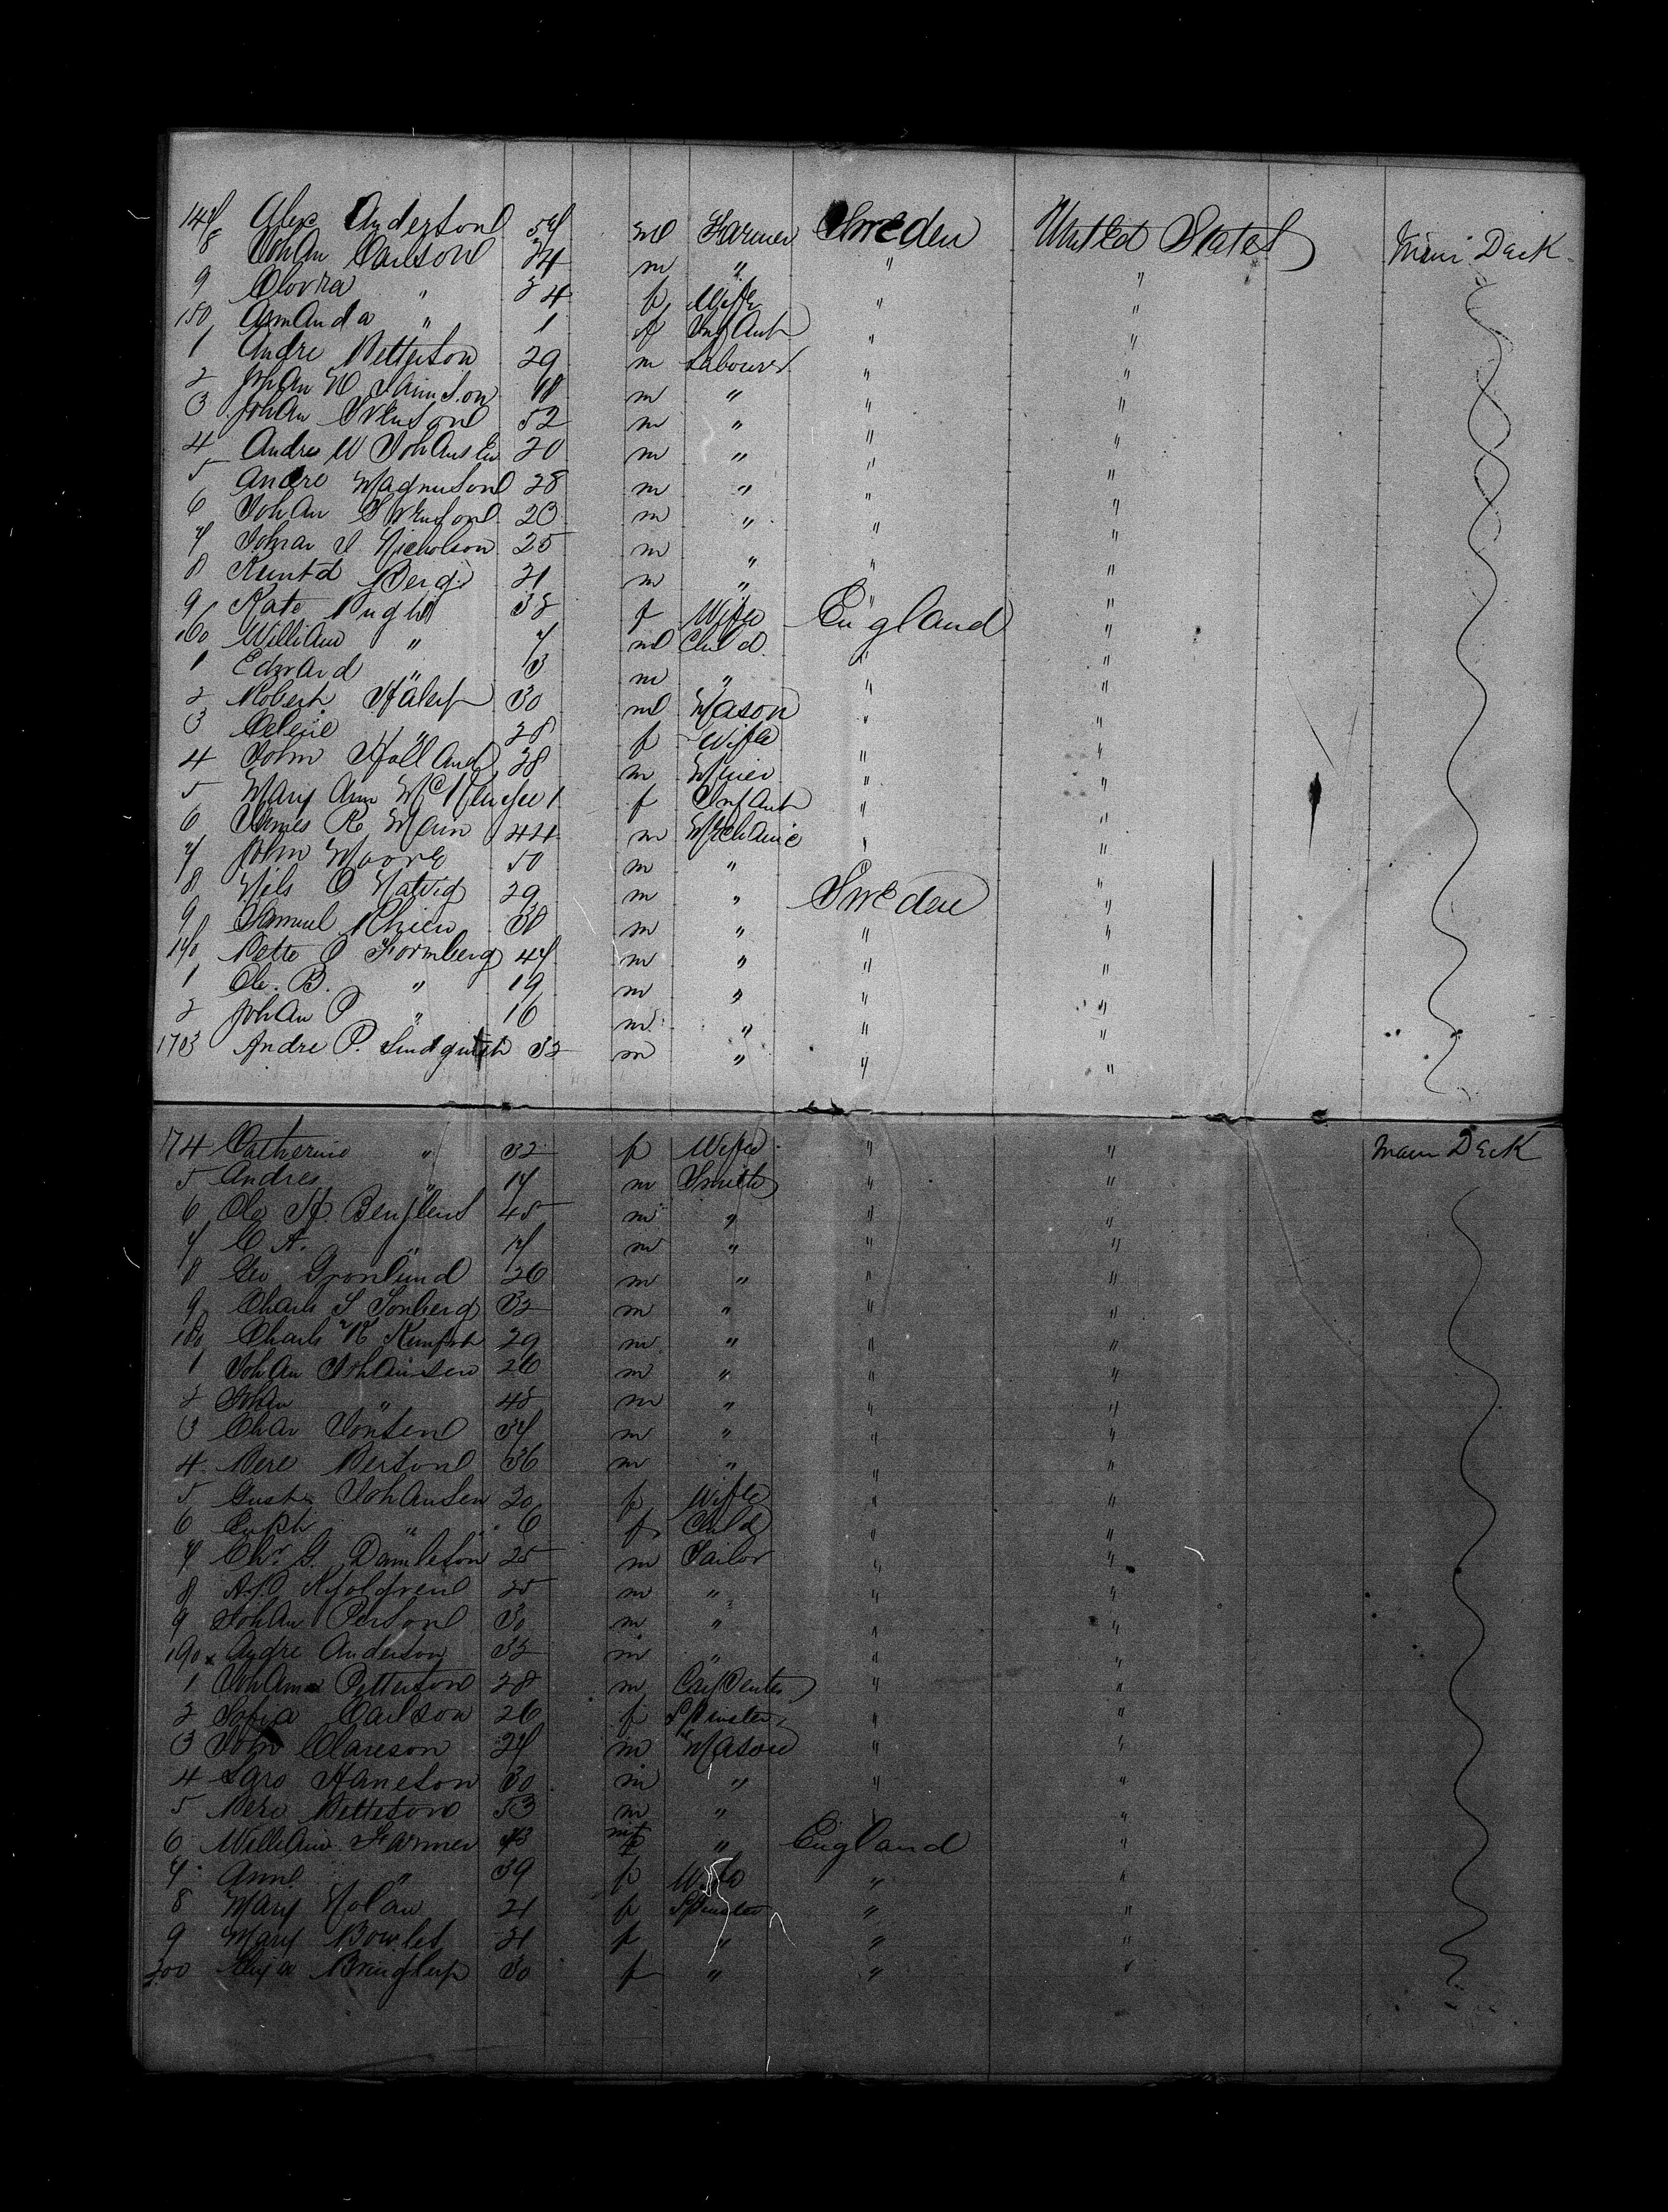 147 Alex Anderson 57 m Farmer Sweden United States Main Deck
8 Johan Carlson 34 m " " "
9 " 34 f Wife " "
150 Amanda " 1 f Infant " "
1 Andre Petterson 29 m Labourer " "
2 Johan 18 m " " "
3 Johan Svenson 52 m " " "
4 Andre W Johansen 20 m " " "
5 Andre Magnuson 28 m " " "
6 Johan Svenson 20 m " " "
7 Johan Nicholson 25 m " " "
8 Berg 21 m " " "
9 Kate Pugh 32 f Wife England "
160 William " 7 m Child " "
1 Edward " 3 m " " "
2 Robert 30 m Mason " "
3 " 28 f Wife " "
4 John Holland 38 m Miner " "
5 Mary Ann 1 f Infant " "
6 James R Main 44 m Mechanic " "
7 John Moore 50 m " " "
8 Nils O 29 m " Sweden "
9 Samuel 38 m " " "
170 O Formberg 47 m " " "
1 Ole. B. " 19 m " " "
2 Johan P " 16 m " " "
173 Andre P. Lindquist 32 m " " "
174 Catherine " 32 f Wife " " Main Deck
5 Andres " 17 m Smith " "
6 Ole 45 m " " "
7 C A. " 17 m " " "
8 Geo Gronlund 26 m " " "
9 Charls S Sonberg 32 m " " "
180 Charls 29 m " " "
1 Johan Johansen 26 m " " "
2 Johan " 48 m " " "
3 Char Jonsen 37 m " " "
4 Pere Person 36 m " " "
5 Johansen 20 f Wife " "
6 " 6 f Child " "
7 Chr. G. Danielson 25 m Tailor " "
8 25 m " " "
9 Johan Person 30 m " " "
190 x Andre Anderson 32 m " " "
1 Petterson 28 m Carpenter " "
2 Sofia Carlson 26 f Spinster " "
3 John Clareson 27 m Mason " "
4 Haneson 30 m " " "
5 Pere Petteson 53 m " " "
6 William Farmer 43 m " England "
7 Ann " 39 f Wife " "
8 Mary Nolan 21 f Spinster " "
9 Mary Bowles 21 f " " "
200 30 f " " "